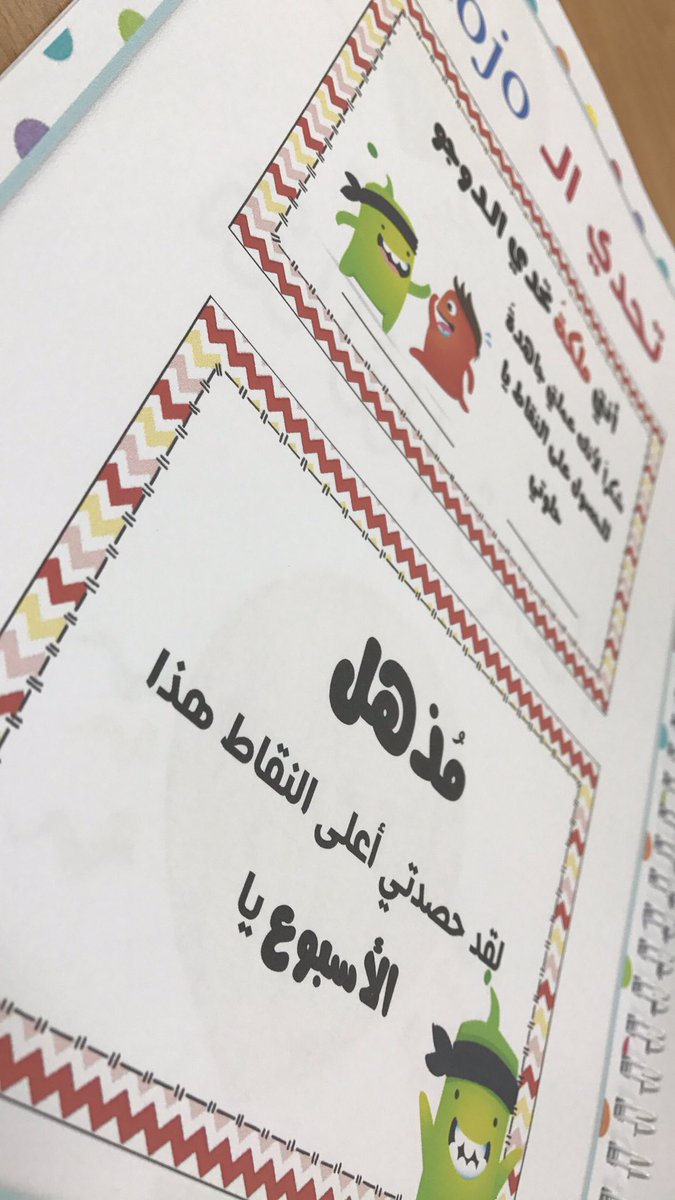 تحدي الـ ojo
أنتي ملكةُ تحدي الدوجو
شكراً لأنك عملتي جاهدةً
للحصول على النقاط يا
حلوتي
مُذهل
لقد حصدتي أعلى النقاط هذا
الأسبوع يا